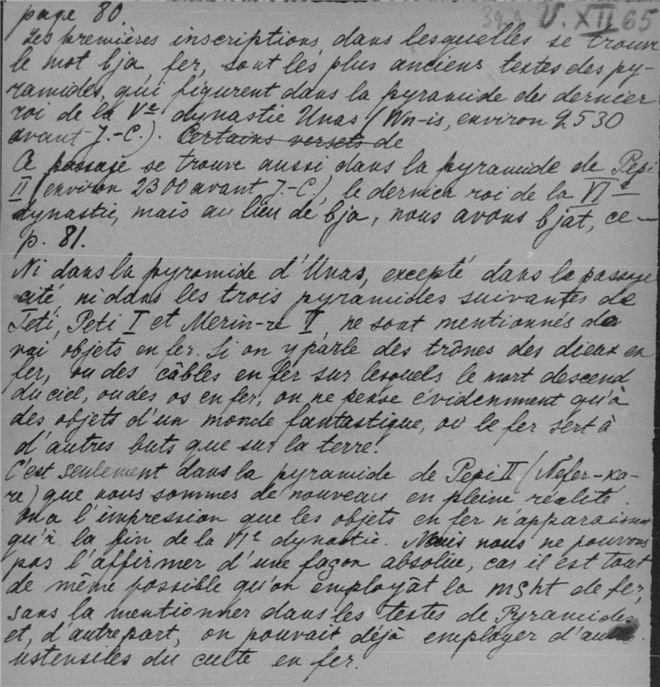 page 80.
V. XII 65
Les premières inscriptions, dans lesquelles se trouve
le mot bja fer, sont les plus anciens textes des py-
ramides, qui figurent dans la pyramide du dernier
roi de la Ve dynastie Unas (Wn-is, environ 2530
avant J.-C.). Certains versets de
Ce passage se trouve aussi dans la pyramide de Pepi
II (environ 2300 avant J.-C), le dernier roi de la VIe
dynastie, mais au lieu de bja, nous avons bjat, ce-
p. 81.
Ni dans la pyramide d'Unas, excepté dans le passage
cité, ni dans les trois pyramides suivantes de
Teti, Pepi I et Merin-re, ne sont mentionnés de
vrai objets en fer. Si on y parle des trônes des dieux en
fer, ou des câbles en fer sur lesquels le mort descend
du ciel, ou des os en fer, on ne pense évidemment qu'à
des objets d'un monde fantastique, où le fer sert à
d'autres buts que sur la terre.
C'est seulement dans la pyramide de Pepi II (Nefer-ka-
re) que nous sommes de nouveau en pleine réalité.
On a l'impression que les objets en fer n'apparaissent
qu'à la fin de la VIe dynastie. Mais nous ne pouvons
pas l'affirmer d'une façon absolue, car il est tout
de même possible qu'on employât la mšht de fer,
sans la mentionner dans les textes de Pyramides
et, d'autre part, on pouvait déjà employer d'autres
ustensiles du culte en fer.